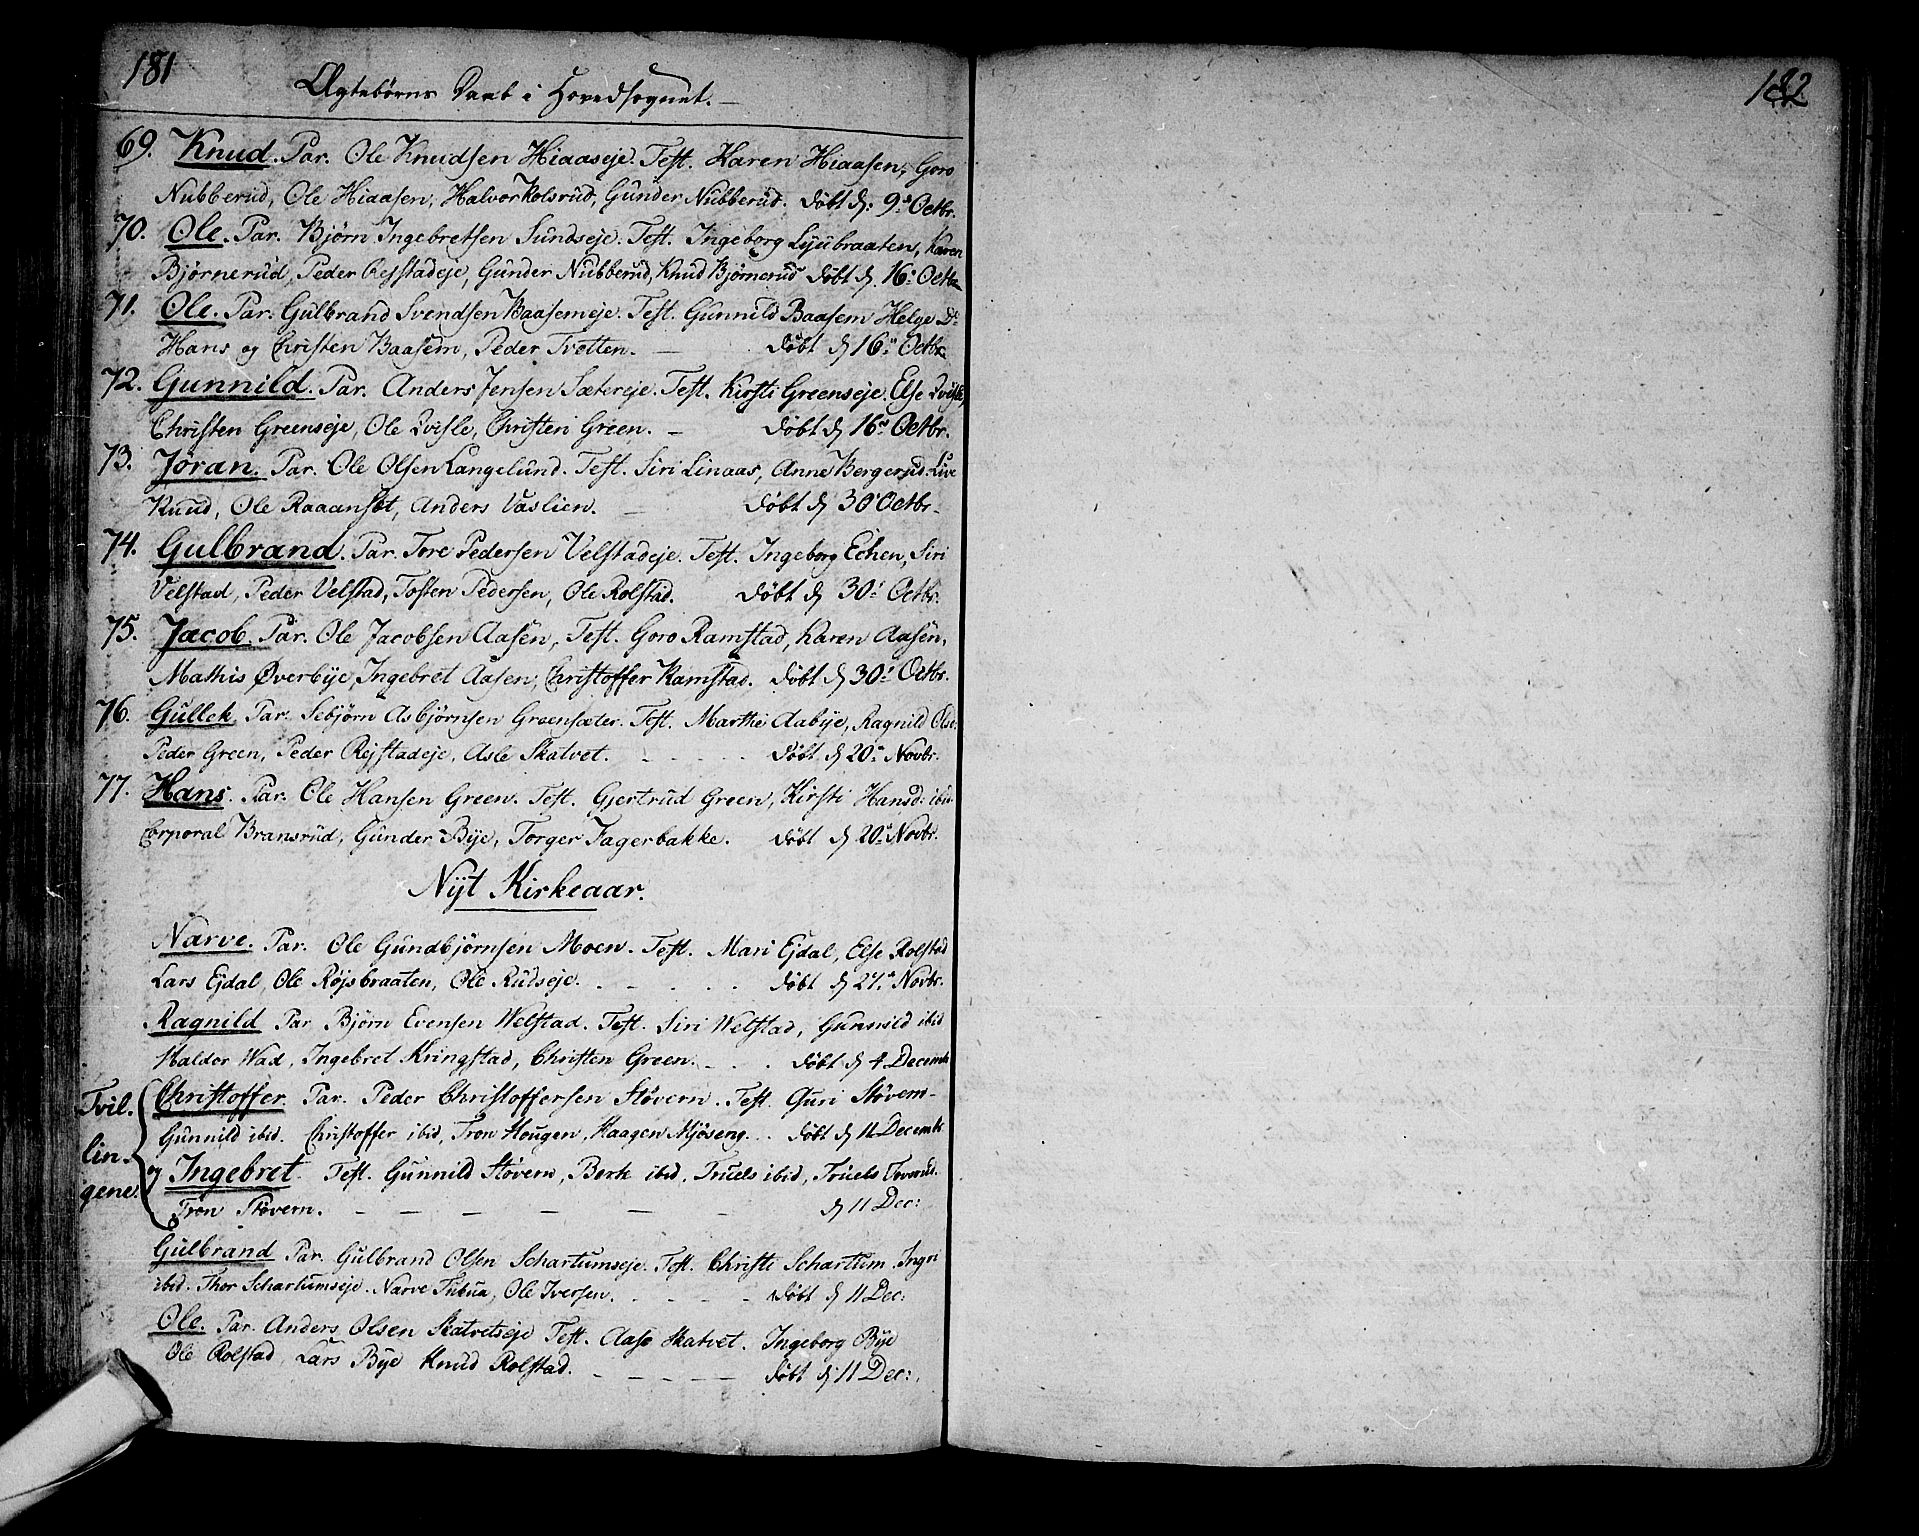 181
Ægtebørns Daab i Hovedsognet. —
69. Knud. Par. Ole Knudsen Hiaaseje. Test. Karen Hiaasen, Goro
Nubberud, Ole Hiaasen, Halvor Kolsrud, Gunder Nubberud. døbt d: 9de Octbr.
70. Ole. Par. Bjørn Ingebretsen Sundseje. Test. Ingeborg Lyubraaten, Karen
Bjørnerud, Peder Rejstadeje, Gunder Nubberud, Knud Bjørnerud døbt d 16: Octbr
71. Ole. Par. Gulbrand Svendsen Baasemeje. Test. Gunnild Baasem Helge Do
Hans og Christen Baasem, Peder Tvetten. — døbt d 16de Octbr
72. Gunnild. Par. Anders Jensen Sætereje. Test. Kirsti Greenseje. Else Qvisle,
Christen Greenseje, Ole Qvisle, Christen Green. — døbt d 16de Octbr.
73. Jøran. Par. Ole Olsen Langelund. Test. Siri Linaas, Anne Bergerud Live
Ruud, Ole Raaanset, Anders Vaslien. — døbt d 30: Octbr.
74. Gulbrand. Par. Tore Pedersen Velstadeje. Test. Ingeborg Echen, Siri
Velstad, Peder Velstad, Tosten Pedersen, Ole Rolstad. døbt d 30: Octbr.
75. Jacob. Par. Ole Jacobsen Aasen, Test. Goro Ramstad, Karen Aasen,
Mathis Øverbye, Ingebret Aasen, Christoffer Ramstad. døbt d 30: Octbr.
76. Gullek Par. Sebjørn Asbjørnsen Greensæter. Test. Marthe Aabye, Ragnild Olsd.
Peder Green, Peder Rejstadeje, Asle Skatvet. - - - - døbt d 20de Novbr.
77. Hans. Par. Ole Hansen Green. Test. Gjertrud Green, Kirsti Hansd: ibid
Corporal Bransrud, Gunder Bye, Torger Fagerbakke. døbt d 20de Novbr.
Nyt Kirkeaar.
Narve. Par. Ole Gundbjørnsen Moen. Test. Mari Ejdal, Else Rolstad
Lars Ejdal, Ole Røjsbraaten, Ole Rudseje. - - - døbt d 27de Novbr.
Ragnild Par Bjørn Evensen Welstad. Test. Siri Welstad, Gunnild ibid
Haldor Wad, Ingebret Kringstad, Christen Green. - - døbt d 4 Decembr
Tvil- Christoffer. Par. Peder Christoffersen Støvern. Test. Guri Støvern-
Gunnild ibid. Christoffer ibid, Tron Hougen, Haagen Mjøseng. . døbt d 11 Decembr.
lin- og Ingebret. Test. Gunnild Støvern, Berte ibid, Truels ibid, Truels
gene. Tron Støvern. — — — — — d 11 Dec:
Gulbrand Par. Gulbrand Olsen Schartumseje. Test. Christi Schartum. Ingri
ibid. Thor Schartumseje. Narve Tubua, Ole Iversen. - - - - døbt d 11 Dec:
Ole. Par. Anders Olsen Skatvetseje Test. Aase Skatvet. Ingeborg Bye
Ole Rolstad, Lars Bye Knud Rolstad. - - - - - døbt d 11 Dec:
182